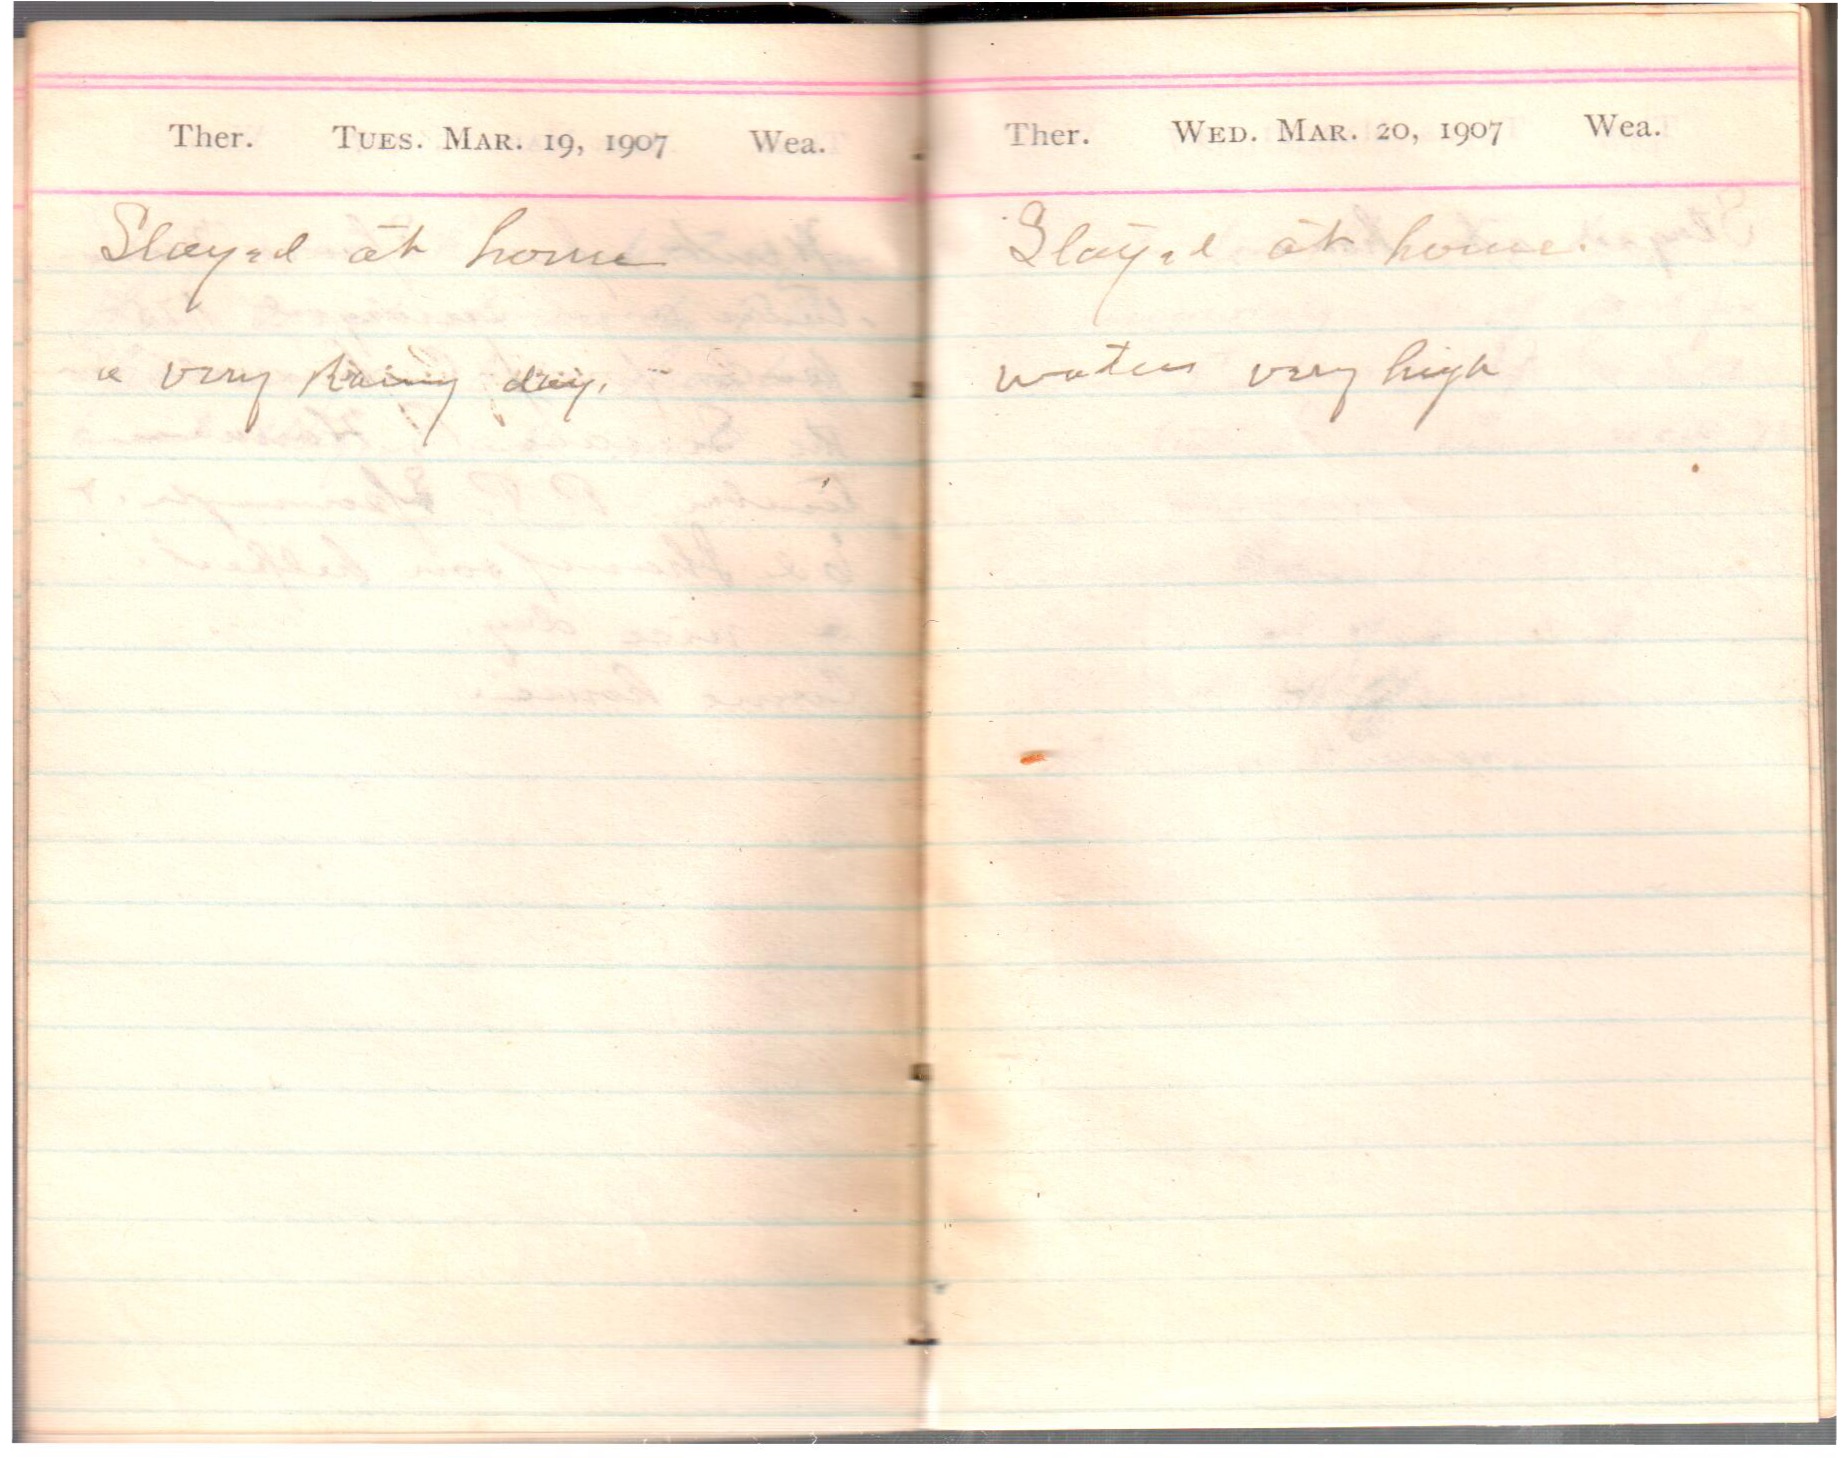 Ther. Tues. Mar. 19, 1907 Wea.
Stayed at home
a very rainy day.
Ther. Wed. Mar. 20, 1907 Wea.
Stayed at home.
waters very high